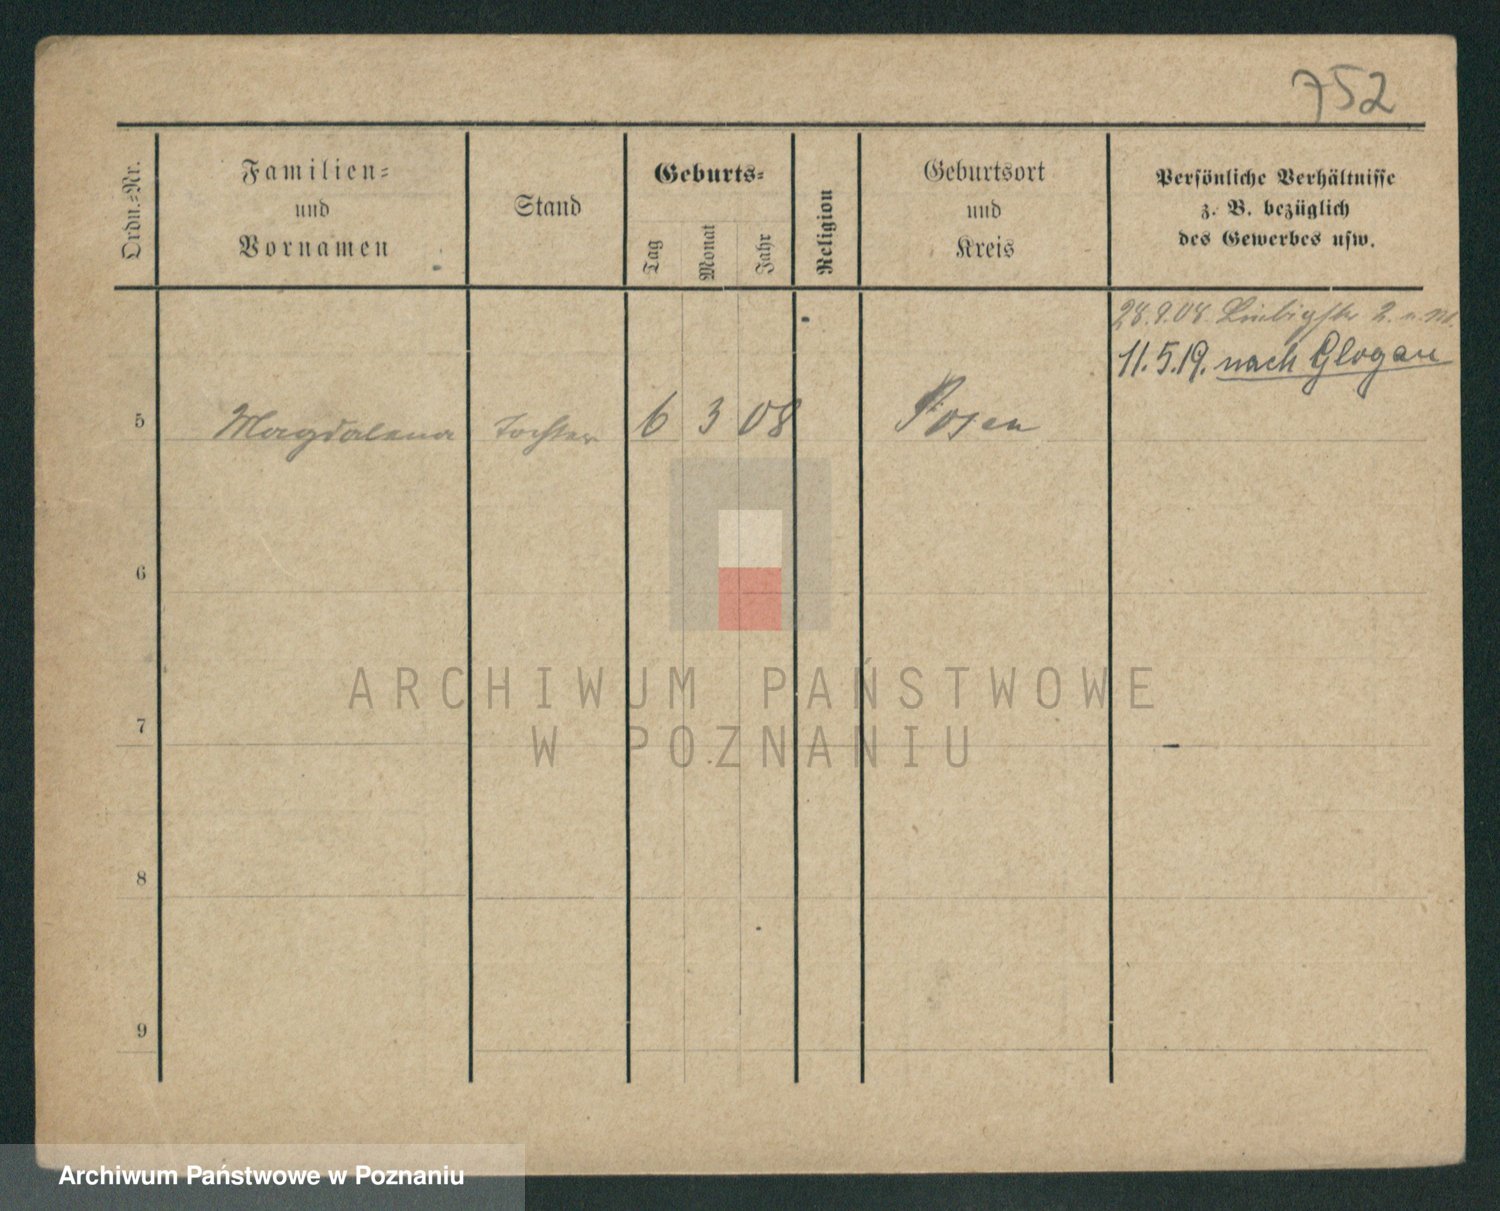 752
Ordn.-Nr.
Familien-
und
Vornamen
Stand
Geburts-
Tag
Monat
Jahr
Religion
Geburtsort
und
Kreis
Persönliche Verhältnisse
z. B. bezüglich
des Gewerbes usw.
28.9.08 Liebigstr 2.
11.5.19. nach Glogau
5 Magdalena Tochter 6 3 08 Posen
6
7
8
9
ARCHIWUM PAŃSTWOWE
W POZNANIU
Archiwum Państwowe w Poznaniu